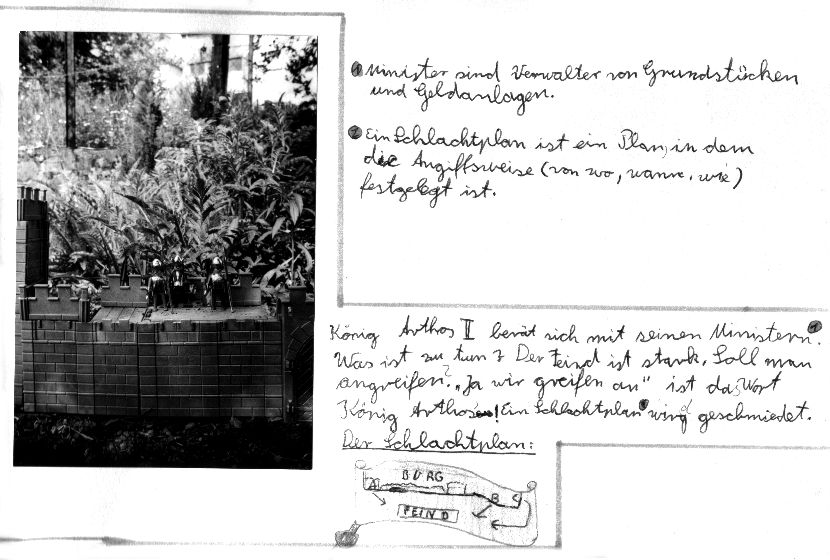 ❶ Minister sind Verwalter von Grundstücken
und Geldanlagen.
❷ Ein Schlachtplan ist ein Plan, in dem
die Angiffsweise (von wo, wann, wie)
festgelegt ist.
König Arthos II berät sich mit seinen Ministern❶.
Was ist zu tun? Der Feind ist stark. Soll man
angreifen? „Ja wir greifen an" ist das Wort
König Arthos! Ein Schlachtplan❷ wird geschmiedet.
Der Schlachtplan:
BURG
A
B C
FEIND